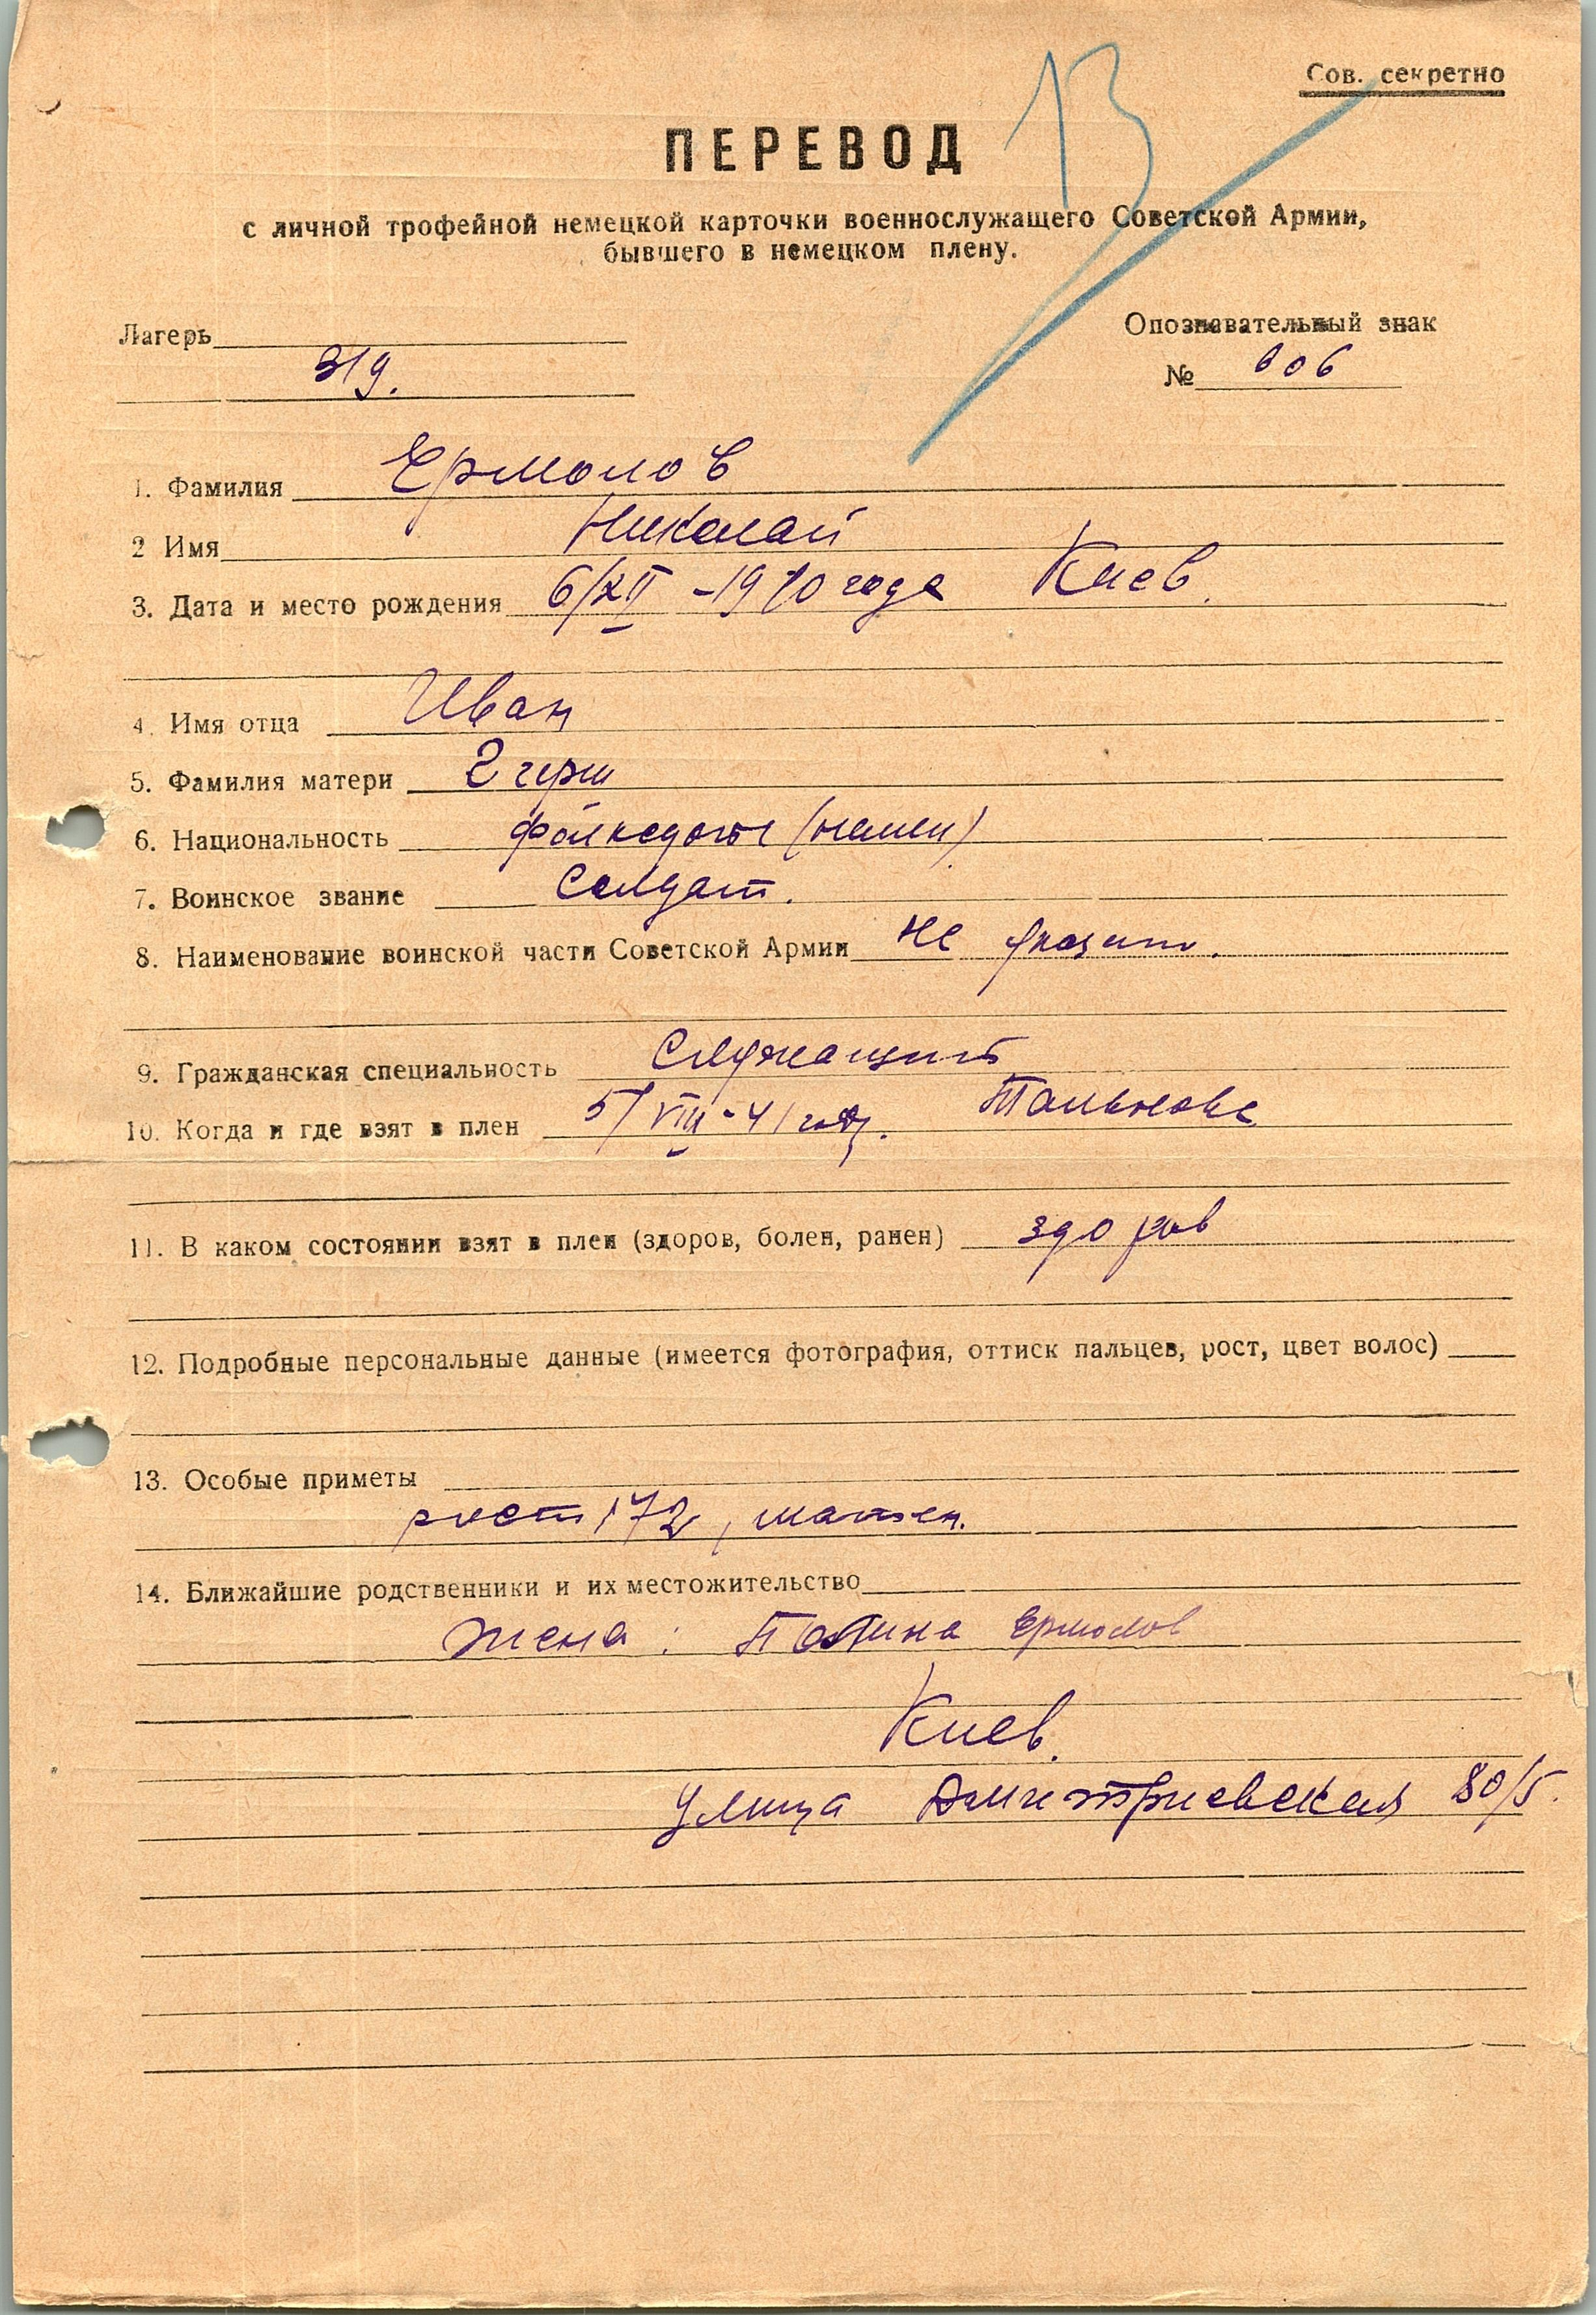 Сов. секретно
13
ПЕРЕВОД
с личной трофейной немецкой карточки военнослужащего Советской Армии,
бывшего в немецком плену.
Лагерь
319.
Опознавательный знак
№ 606
1. Фамилия Ермолов
2 Имя Николай
3. Дата и место рождения 6/XII -1910 года Киев.
4. Имя отца Иван
5. Фамилия матери
6. Национальность (немец)
7. Воинское звание Солдат.
8. Наименование воинской части Советской Армии не указано.
9. Гражданская специальность Служащий
10. Когда и где взят в плен 5/VIII-41 года. Тальное
11. В каком состоянии взят в плен (здоров, болен, ранен) здоров
12. Подробные персональные данные (имеется фотография, оттиск пальцев, рост, цвет волос)
13. Особые приметы
рост 172, шатен.
14. Ближайшие родственники и их местожительство
Жена: Полина Ермолов
Киев.
улица Дмитриевская 80/5.